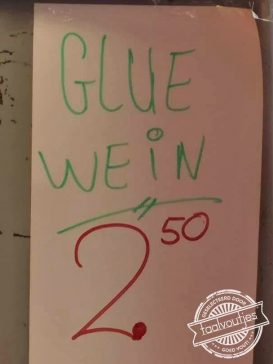 GLUE
WEiN
2.50
GESELECTEERD DOOR
taalvoutjes
GOED FOUT!